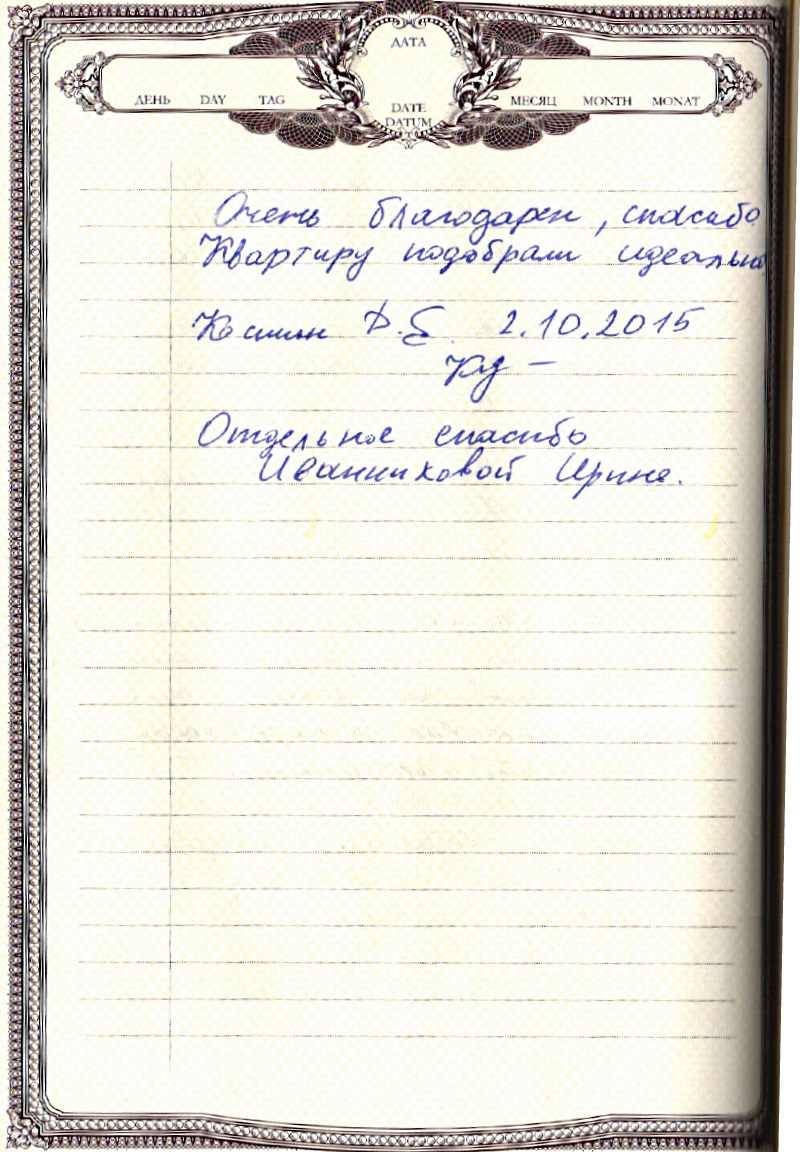 ДАТА
ДЕНЬ DAY TAG DATE МЕСЯЦ MONTH MONAT
DATUM
Очень благодарен, спасибо
Квартиру подобрали идеально
Д.Б. 2.10.2015
Отдельное спасибо
Иванниковой Ирине.